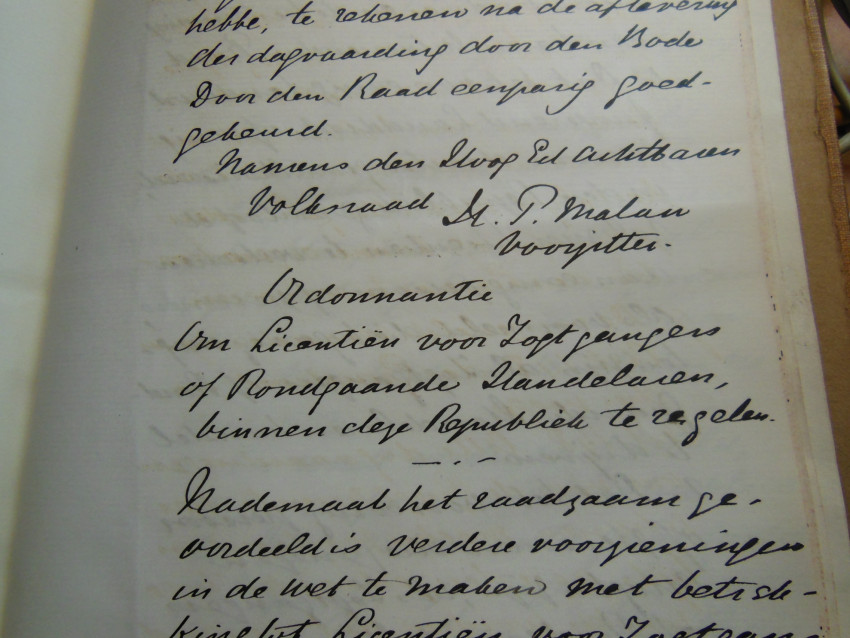 hebbe, te rekenen na de aflevering
der dagvaarding door den Bode
Door den Raad eenparig goed-
gekeurd.
Namens den Hoog Ed Achtbaren
Volksraad
P. Malan
Voorzitter.
Ordonnantie
Om Licentiën voor Togtgangers
of Rondgaande Handelaren,
binnen deze Republiek te regelen.
Nademaal het raadzaam ge-
oordeeld is verdere voorzieningen
in de wet te maken met betrek-
king tot Licentiën voor Togtgang